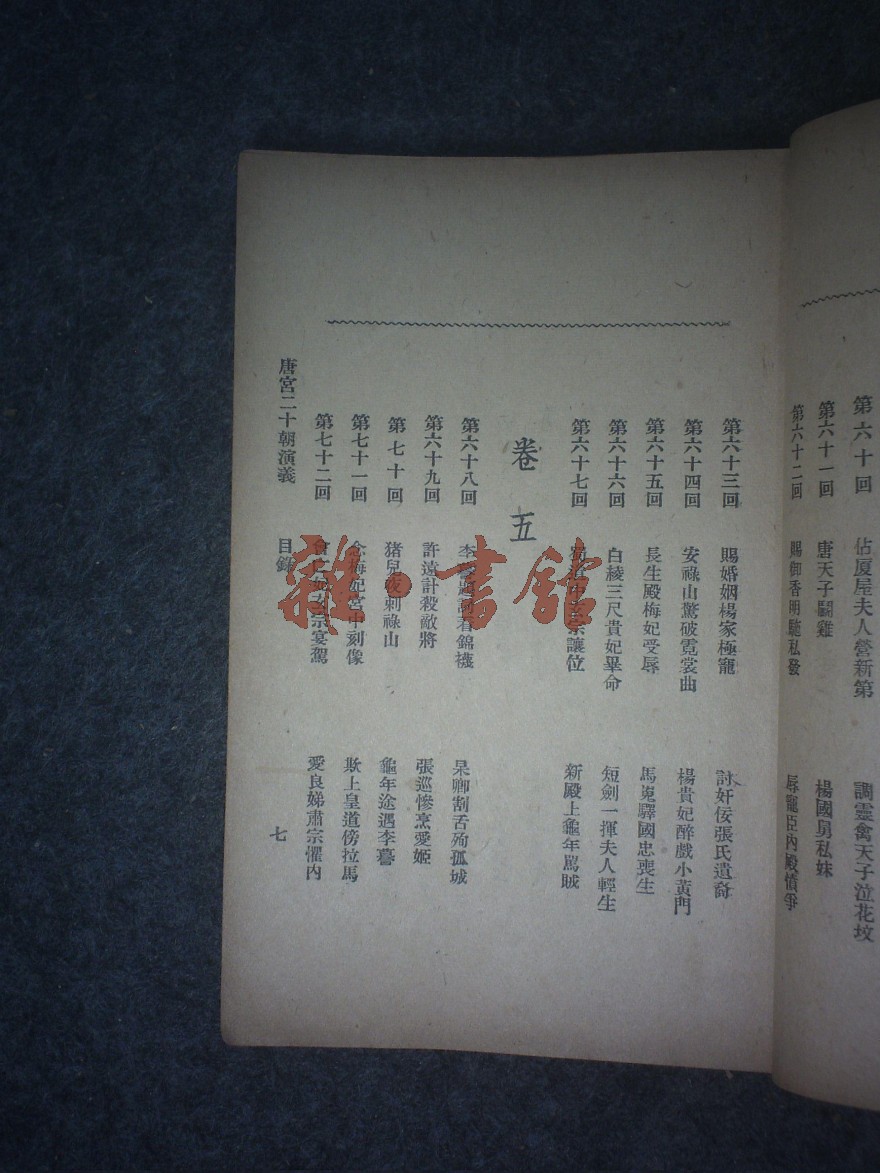 第六十回　佔厦屋夫人營新第　調靈禽天子泣花坟
第六十一回　唐天子鬭雞　楊國舅私妹
第六十二回　賜御香明駝私發　辱寵臣內殿憤爭
第六十三回　賜婚姻楊家極寵　討奸佞張氏遺裔
第六十四回　安祿山驚破霓裳曲　楊貴妃醉戲小黃門
第六十五回　長生殿梅妃受辱　馬嵬驛國忠喪生
第六十六回　白綾三尺貴妃畢命　短劍一揮夫人輕生
第六十七回　宗讓位　新殿上龜年罵賊
卷五
第六十八回　李看錦襪　杲卿割舌殉孤城
第六十九回　許遠計殺敵將　張巡慘烹愛姬
第七十回　猪兒夜刺祿山　龜年途遇李謩
第七十一回　念梅妃宮中刻像　欺上皇道傍拉馬
第七十二回　宗宴駕　愛良娣肅宗懼內
唐宮二十朝演義　目錄　七
雜·書館